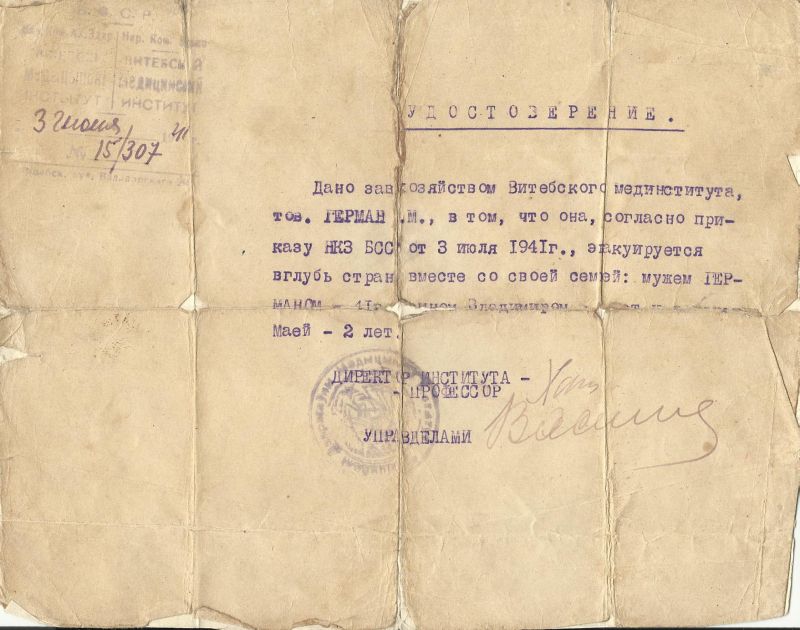 С. С. Р.
Нар. Ком. Здрав
ВИТЕБСКИЙ
МЕДИЦИНСКИЙ
ИНСТЫТУТ ИНСТИТУТ
3 июля 41 г.
№ 15/307
УДОСТОВЕРЕНИЕ.
Дано зав хозяйством Витебского мединститута,
тов. ГЕРМАН .М., в том, что она, согласно при-
казу НКЗ БССР от 3 июля 1941г., эвакуируется
вглубь стран вместе со своей семей: мужем ГЕР-
МАНОМ - 41г. Владимиром
Маей - 2 лет.
ДИРЕКТОР ИНСТИТУТА -
- ПРОФЕССОР
УПРАВДЕЛАМИ